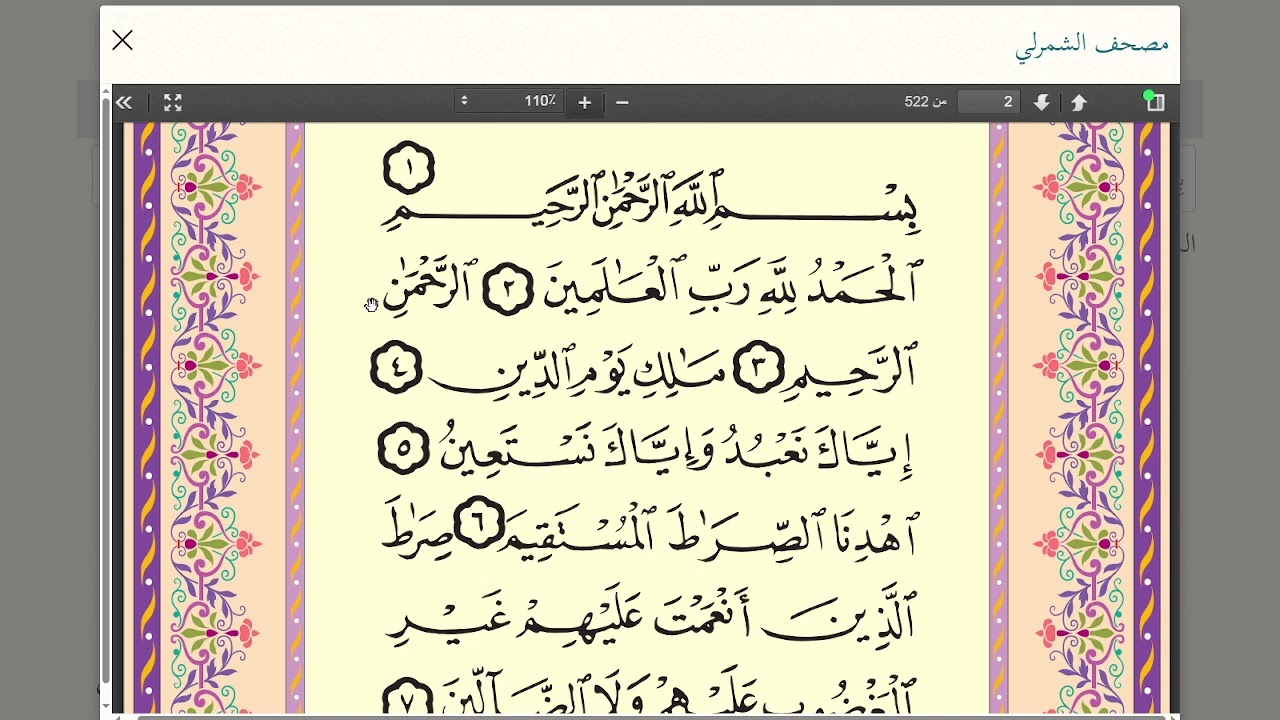 مصحف الشمرلي
2 من 522 110٪
بِسْمِ ٱللَّهِ ٱلرَّحْمَٰنِ ٱلرَّحِيمِ ١
ٱلْحَمْدُ لِلَّهِ رَبِّ ٱلْعَـٰلَمِينَ ٢ ٱلرَّحْمَٰنِ
ٱلرَّحِيمِ ٣ مَـٰلِكِ يَوْمِ ٱلدِّينِ ٤
إِيَّاكَ نَعْبُدُ وَإِيَّاكَ نَسْتَعِينُ ٥
ٱهْدِنَا ٱلصِّرَٰطَ ٱلْمُسْتَقِيمَ ٦ صِرَٰطَ
ٱلَّذِينَ أَنْعَمْتَ عَلَيْهِمْ غَيْرِ
ٱلْمَغْضُوبِ عَلَيْهِمْ وَلَا ٱلضَّآلِّينَ ٧